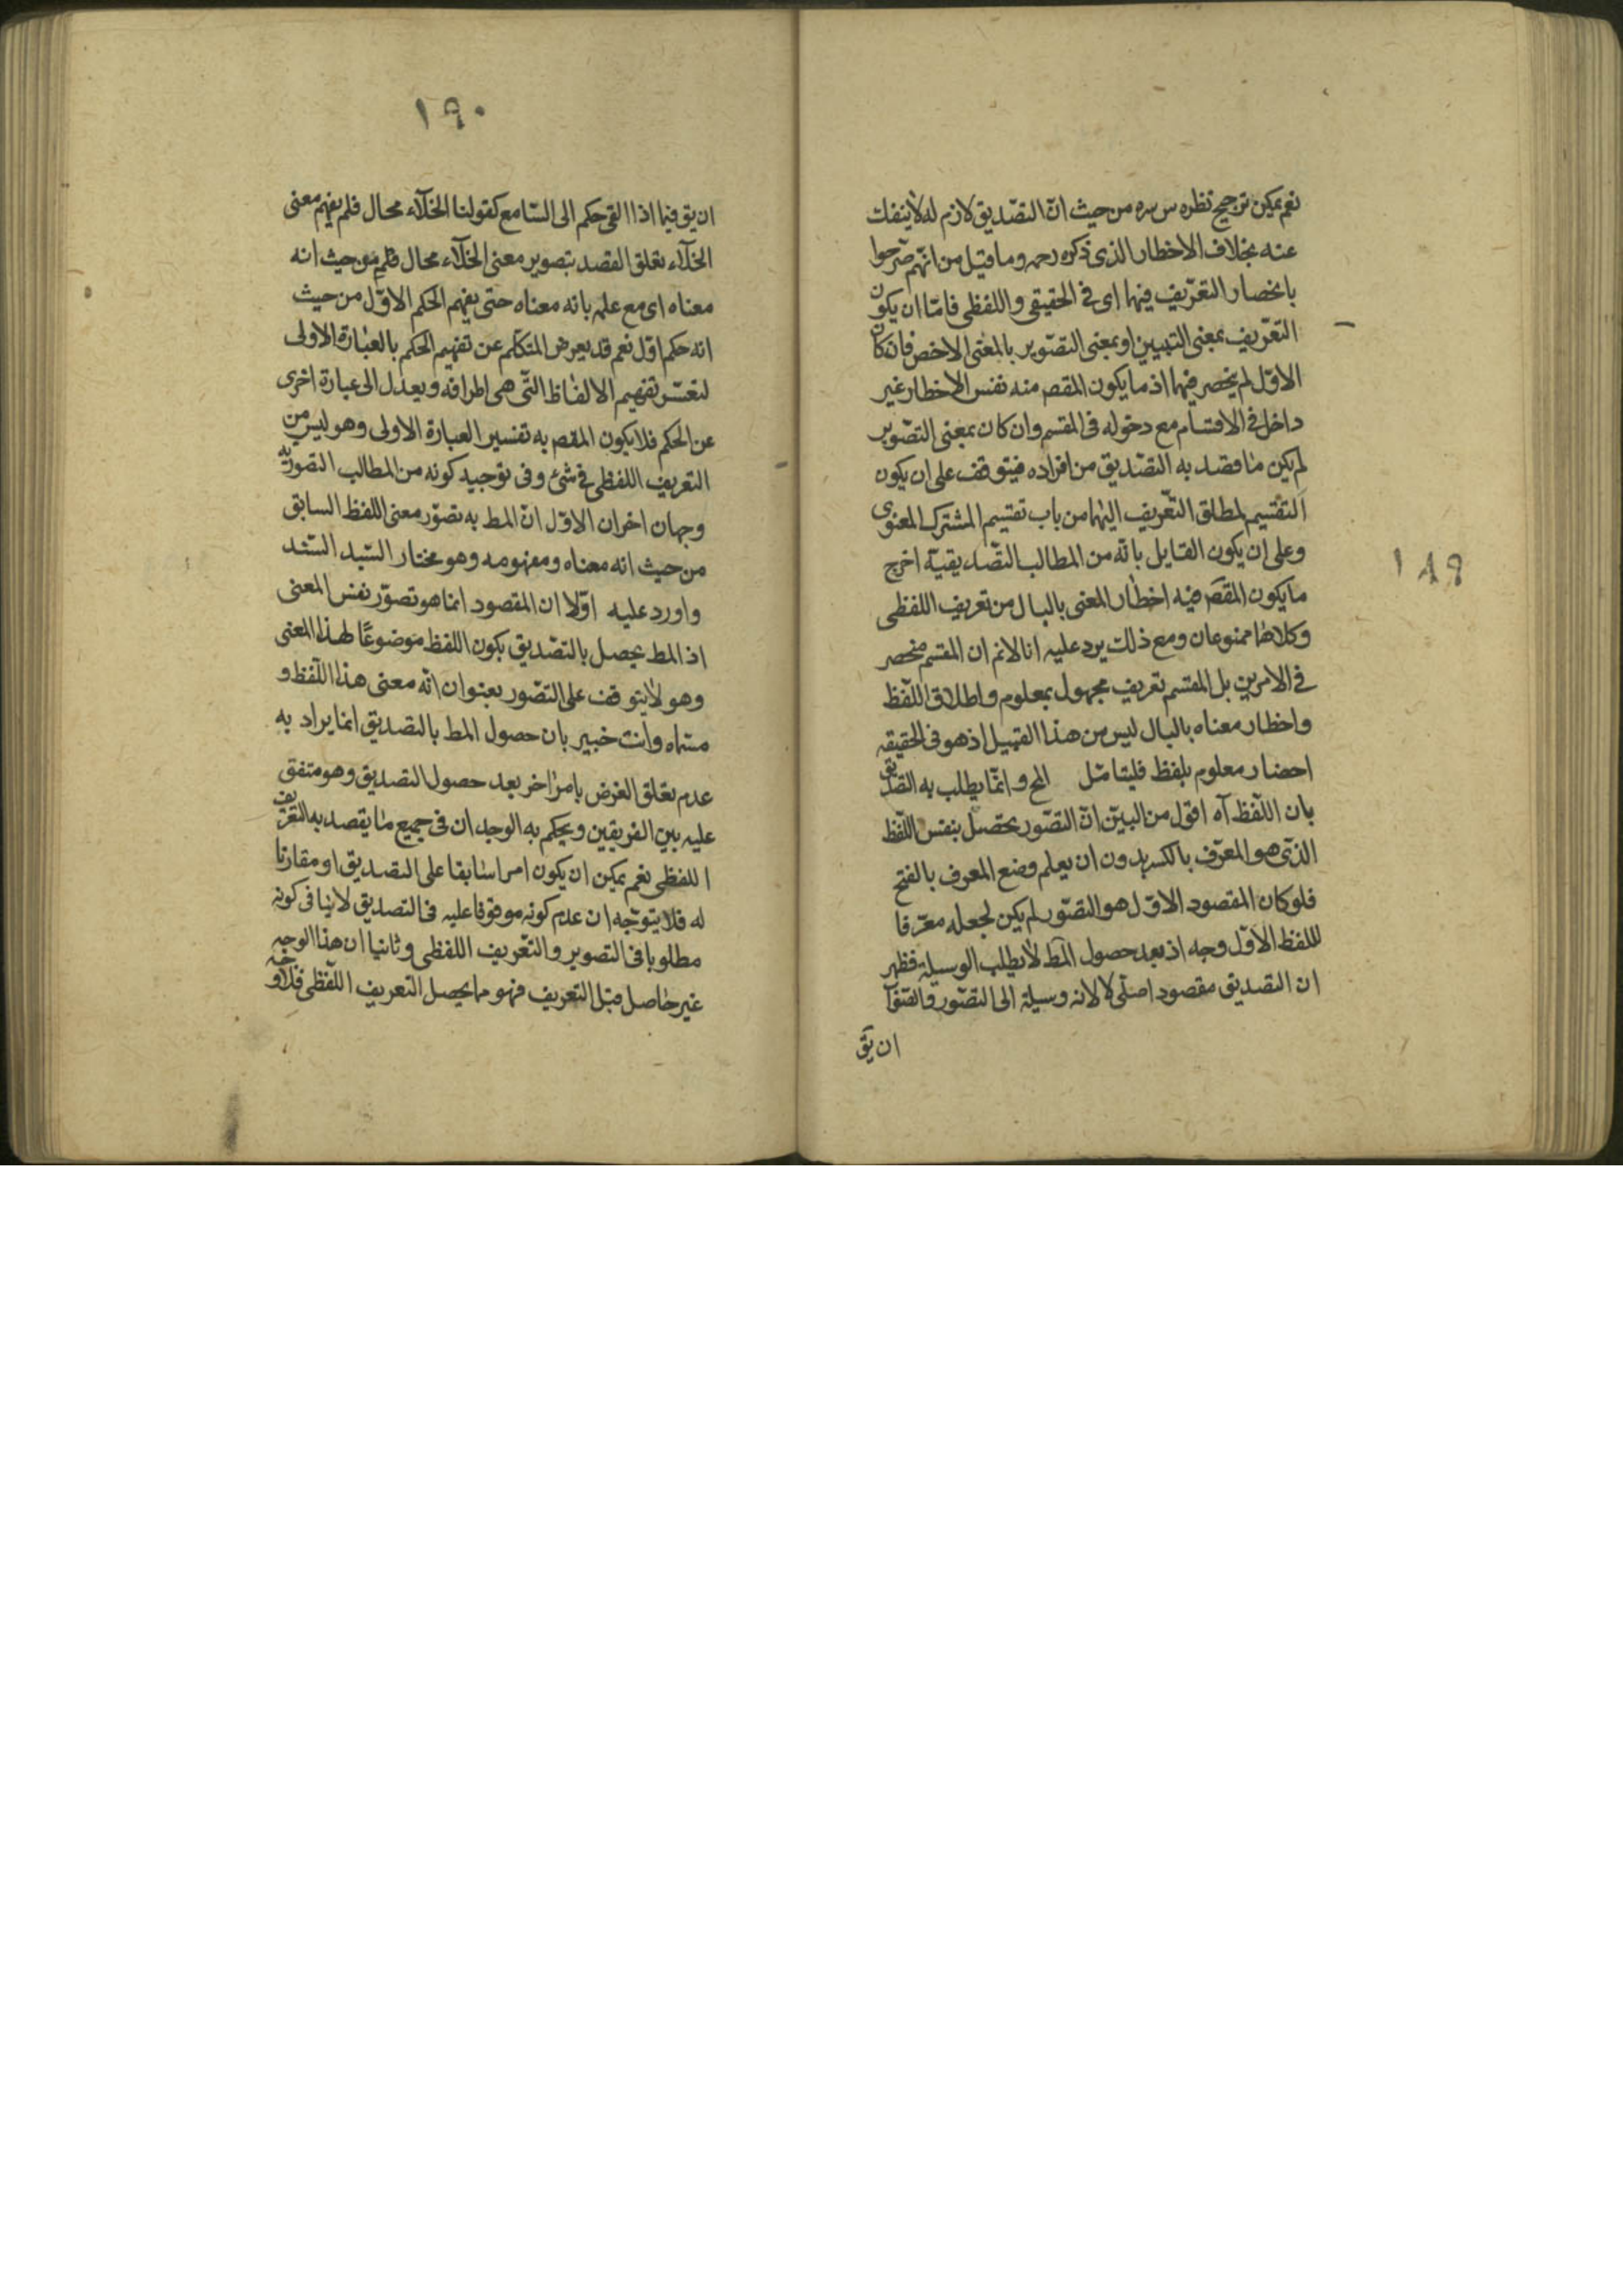 نعم يمكن ترجيح نظره س سره من حيث ان التصديق لازم له لا ينفك
عنه بخلاف الاخطار الذى ذكره رحمه وما قيل من انهم صرحوا
بانحصار التعريف فيهما اى فى الحقيقى واللفظى فامّا ان يكون
التعريف بمعنى التبيين او بمعنى التصوير بالمعنى الاخص فان كان
الاول لم ينحصر فيهما اذ ما يكون المقصم منه نفس الاخطار غير
داخل فى الاقسام مع دخوله فى المقسم وان كان بمعنى التصوير
لم يكن ما قصد به التصديق من افراده فيتوقف على ان يكون
التقسيم لمطلق التعريف اليهما من باب تقسيم المشترك المعنوى
وعلى ان يكون القايل بانه من المطالب التصديقية اخرج
ما يكون المقصم فيه اخطار المعنى بالبال من تعريف اللفظى
وكلاهما ممنوعان ومع ذلك يرد عليه انا لانم ان المقسم منحصر
فى الامرين بل المقسم تعريف مجهول بمعلوم واطلاق اللفظ
واخطار معناه بالبال ليس من هذا القبيل اذ هو فى الحقيقه
احضار معلوم بلفظ فليتامّل المح وانمّا يطلب به التصديق
بان اللفظ آه اقول من البيّن ان التصوّر يحصل بنفس اللفظ
الذى هو المعرّف بالكسر بدون ان يعلم وضع المعرف بالفتح
فلو كان المقصود الاول هو التصوّر لم يكن لجعله معرّفا
للفظ الاول وجه اذ بعد حصول المط لا يطلب الوسيلة فظهر
ان التصديق مقصود اصلى لا لانه وسيلة الى التصوّر
ان يق
١٨٩
١٩٠
ان يق فيما اذا القى حكم الى السّامع كقولنا الخلآء محال فلم يفهم معنى
الخلآء تعلق القصد بتصوير معنى الخلآء محال من حيث انه
معناه اى مع علمه بانه معناه حتى يفهم الحكم الاوّل من حيث
انه حكم اوّل نعم قد يعرض المتكلم عن تفهيم الحكم بالعبارة الاولى
لتعسّر تفهيم الالفاظ التى هى اطرافه ويعدل الى عبارة اخرى
عن الحكم فلا يكون المقصم به تفسير العبارة الاولى وهو ليس من
التعريف اللفظى فى شئ وفى توجيه كونه من المطالب التصوريّه
وجهان اخران الاوّل انّ المط به تصوّر معنى اللفظ السابق
من حيث انه معناه ومفهومه وهو مختار السّيد السّند
واورد عليه اوّلا ان المقصود انما هو تصوّر نفس المعنى
اذ المط يحصل بالتصديق بكون اللفظ موضوعًا لهذا المعنى
وهو لا يتوقف على التصّور بعنوان انّه معنى هذا اللّفظ و
مسمّاه وانت خبير بان حصول المط بالتصديق انما يراد به
عدم تعلق الغرض بامر اخر بعد حصول التصديق وهو متفق
عليه بين الفريقين ويحكم به الوجدان فى جميع ما يقصد به التعريف
اللفظى نعم يمكن ان يكون امرا سابقا على التصديق او مقارنا
له فلا يتوجّه ان عدم كونه موقوفا عليه فى التصديق لا ينافى كونه
مطلوبا فى التصوير والتعّريف اللفظى وثانيا ان هذا الوجه
غير حاصل قبل التعريف فهو ما يحصل التعريف اللّفظى فلا وجه